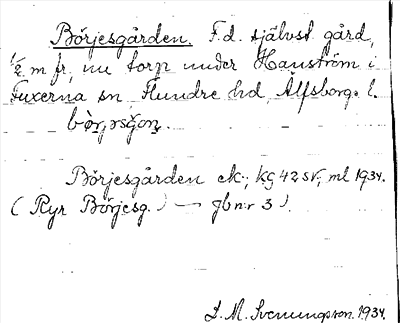 Börjesgården. F.d. självst. gård,
1/2 m fr, nu torp under Hanström i
Fuxerna sn, Flundre hd, Älfsborgs l.
Börjesgården ek; kg 42 SV; ml 1934.
(Ryr Börjesg.) — jb n:r 3).
S. M. Svenungson. 1934.